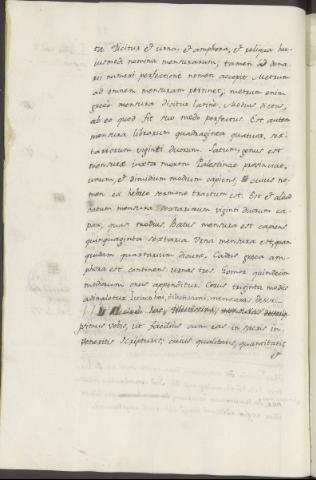 ta dicitur et urna, et amphora, et reliqua hu-
iusmodi nomina mensurarum, tamen ad dena-
rii numeri perfectione nomen accepit. Metrum
ad omnem mensuram pertinet, metrum enim
grece mensura dicitur latine. Modius dictus,
ab eo quod fit suo modo perfectus. Est autem
mensura librarum quadraginta quatuor, sex-
tariorum viginti duorum. Satum, genus est
mensurae iuxta morem Palestinae provinciae,
unum, et dimidium modium capiens, cuius no-
men ex hebreo sermone tractum est. Est et aliud
satum mensura sextariorum viginti duorum ca-
pax, quasi modius. Batus mensura est capiens
quinquaginta sextaria. Urna mensura est, quam
quidam quartarium dicunt. Cadus greca am-
phora est continens urnas tres. Gomor quindecim
modiorum onus appenditur. Corus triginta modiis
adimpletur. fratres, dilectissimi, mensuras descri-
primus vobis, ut facilius cum eas in sacris in-
veneritis scripturis, cuius qualitatis, quantitatis
et